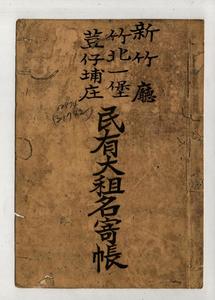 新竹廳
竹北一堡
荳仔埔庄
民有大租名寄帳